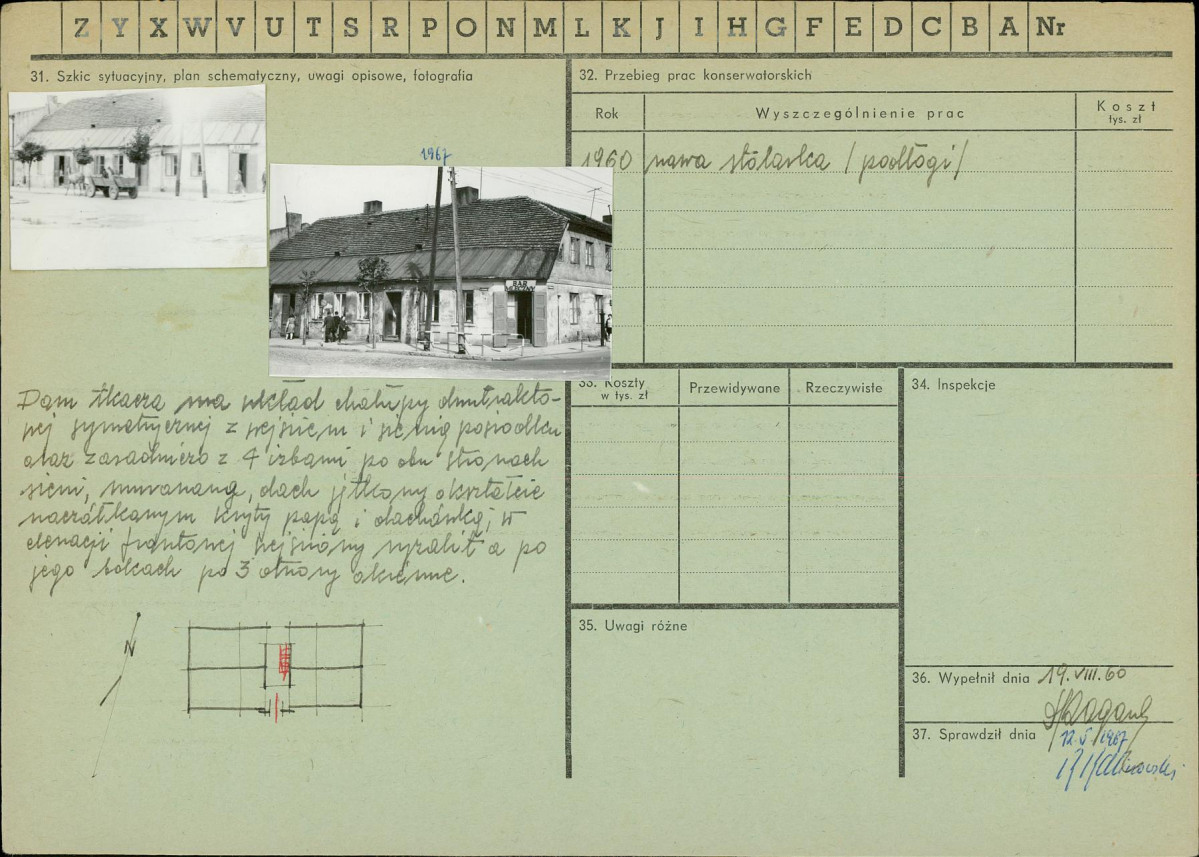 Z Y X W V U T S R P O N M L K J I H G F E D C B A Nr
31. Szkic sytuacyjny, plan schematyczny, uwagi opisowe, fotografia
1967
BAR
MLECZNY
Dom tkacza ma układ chałupy dwutrakto-
wej symetrycznej z wejściem i sienią pośrodku
oraz zasadniczo z 4 izbami po obu stronach
sieni, murowany, dach
naczółkowym kryty papą i dachówką; w
elewacji frontowej wejściowy ryzalit a po
jego bokach po 3 otwory okienne.
N
32. Przebieg prac konserwatorskich
Rok
Wyszczególnienie prac
Koszt
tys. zł
1960 nowa stolarka /podłogi/
33. Koszty
w tys. zł
Przewidywane
Rzeczywiste
34. Inspekcje
35. Uwagi różne
36. Wypełnił dnia 19.VIII.60
37. Sprawdził dnia
12.V.1967